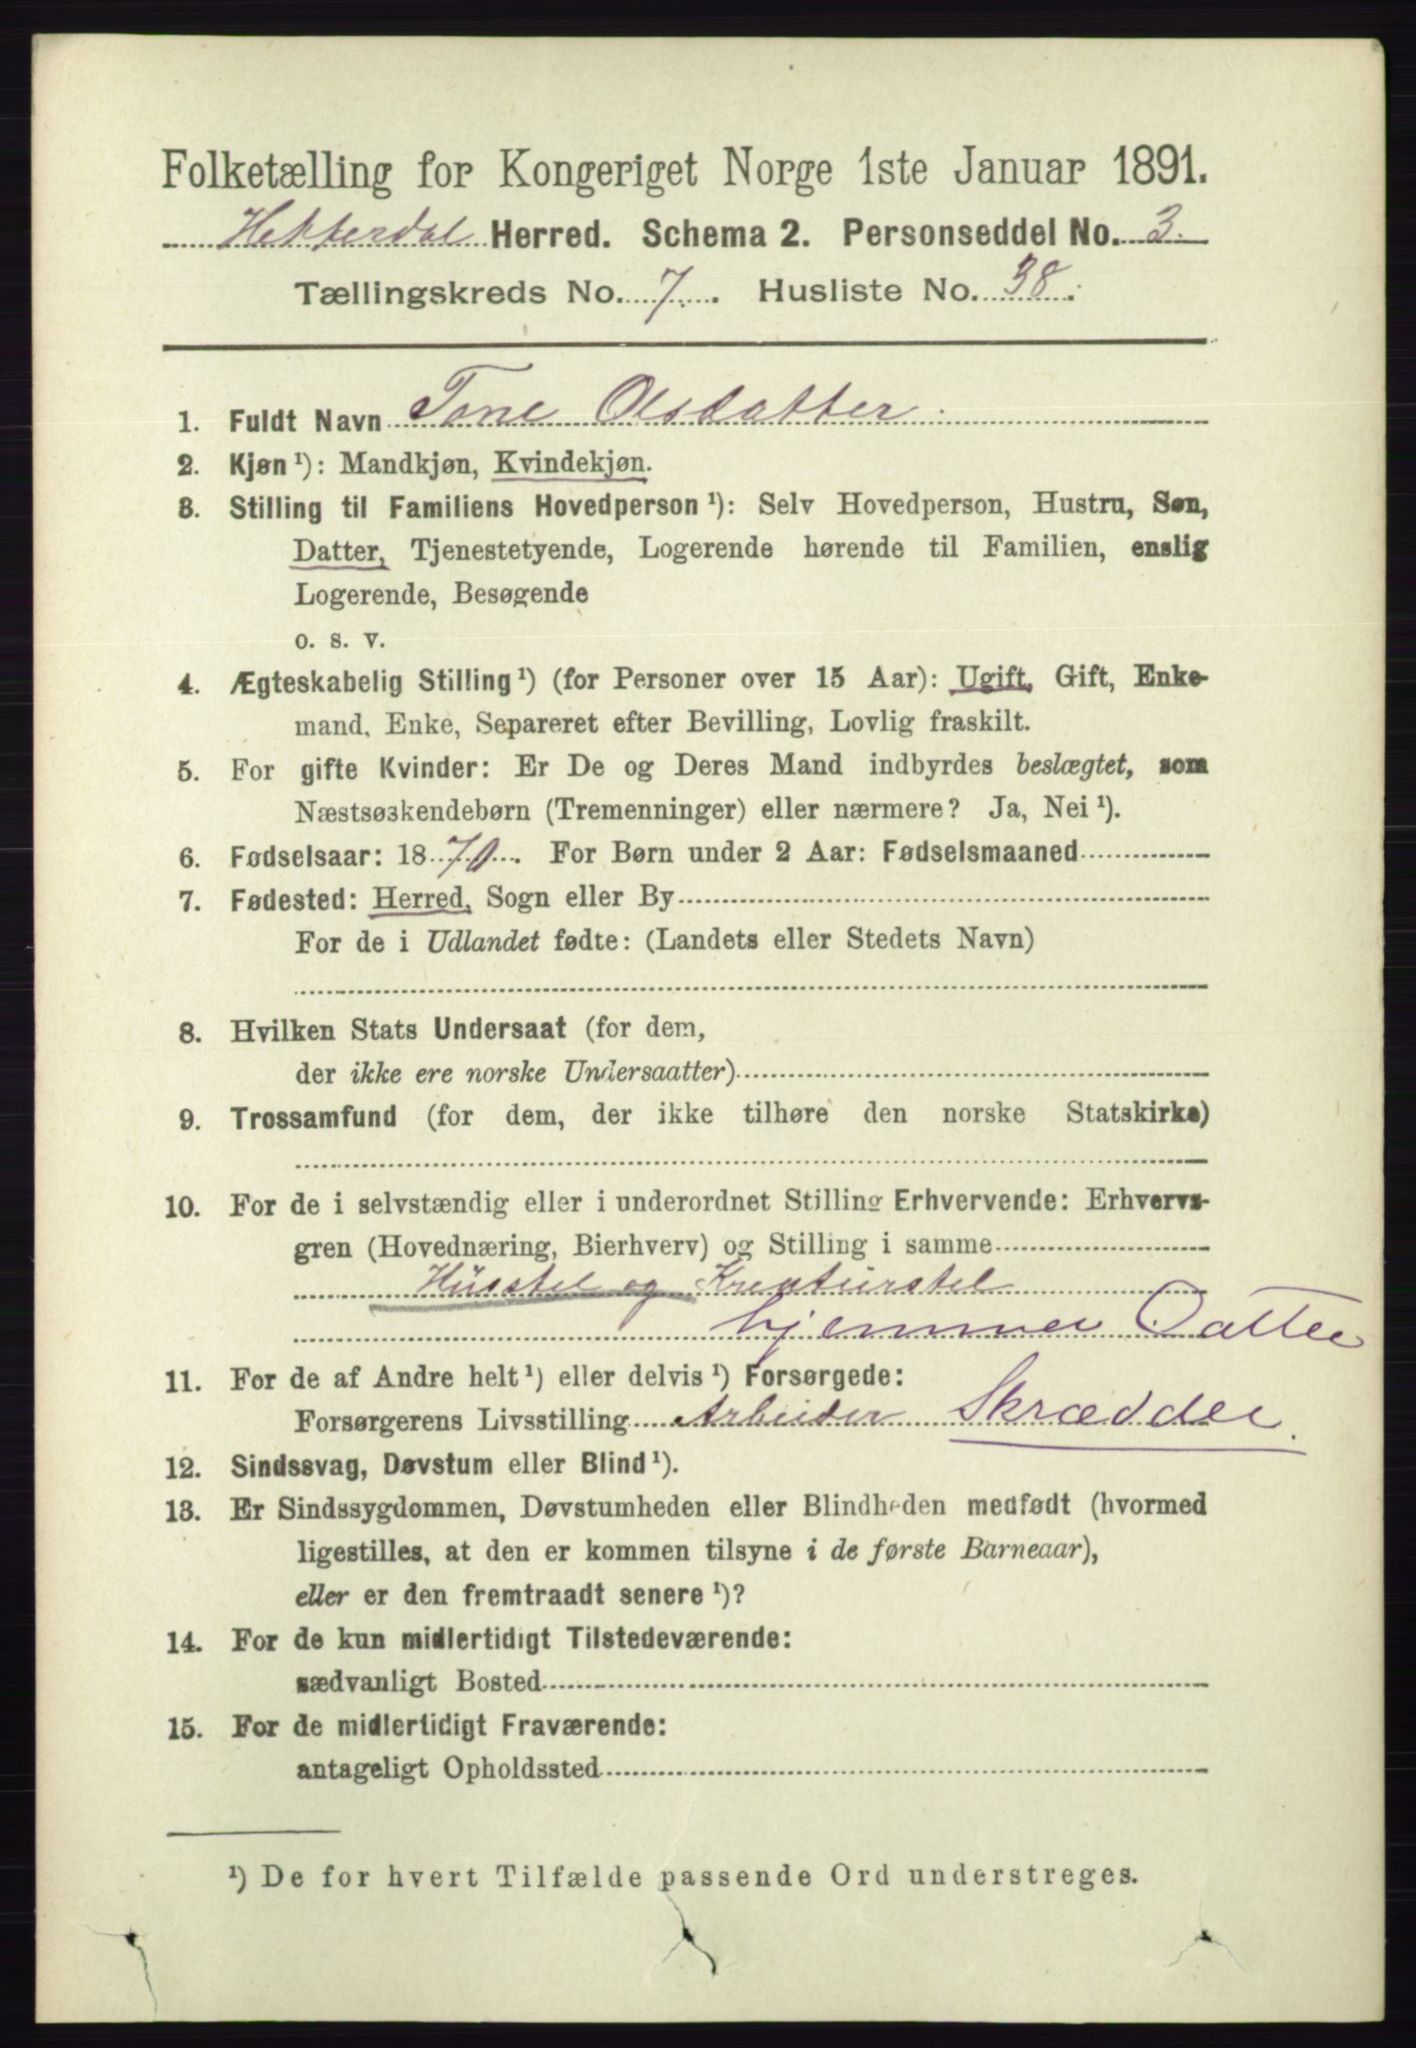 Folketælling for Kongeriget Norge 1ste Januar 1891.
Hetterdal Herred. Schema 2. Personseddel No. 3.
Tællingskreds No. 7. Husliste No. 38.
1. Fuldt Navn Tone Olsdatter.
2. Kjøn ¹): Mandkjøn, Kvindekjøn.
3. Stilling til Familiens Hovedperson ¹): Selv Hovedperson, Hustru, Søn,
Datter, Tjenestetyende, Logerende hørende til Familien, enslig
Logerende, Besøgende
o. s. v.
4. Ægteskabelig Stilling ¹) (for Personer over 15 Aar): Ugift, Gift, Enke-
mand, Enke, Separeret efter Bevilling, Lovlig fraskilt.
5. For gifte Kvinder: Er De og Deres Mand indbyrdes beslægtet, som
Næstsøskendebørn (Tremenninger) eller nærmere? Ja, Nei ¹).
6. Fødselsaar: 1870. For Børn under 2 Aar: Fødselsmaaned
7. Fødested: Herred, Sogn eller By
For de i Udlandet fødte: (Landets eller Stedets Navn)
8. Hvilken Stats Undersaat (for dem,
der ikke ere norske Undersaatter)
9. Trossamfund (for dem, der ikke tilhøre den norske Statskirke)
10. For de i selvstændig eller i underordnet Stilling Erhvervende: Erhvervs-
gren (Hovednæring, Bierhverv) og Stilling i samme
Husstel og Kreaturstel
hjemmev Datter
11. For de af Andre helt ¹) eller delvis ¹) Forsørgede:
Forsørgerens Livsstilling Arbeider Skrædder.
12. Sindssvag, Døvstum eller Blind ¹).
13. Er Sindssygdommen, Døvstumheden eller Blindheden medfødt (hvormed
ligestilles, at den er kommen tilsyne i de første Barneaar),
eller er den fremtraadt senere ¹)?
14. For de kun midlertidigt Tilstedeværende:
sædvanligt Bosted
15. For de midlertidigt Fraværende:
antageligt Opholdssted
¹) De for hvert Tilfælde passende Ord understreges.